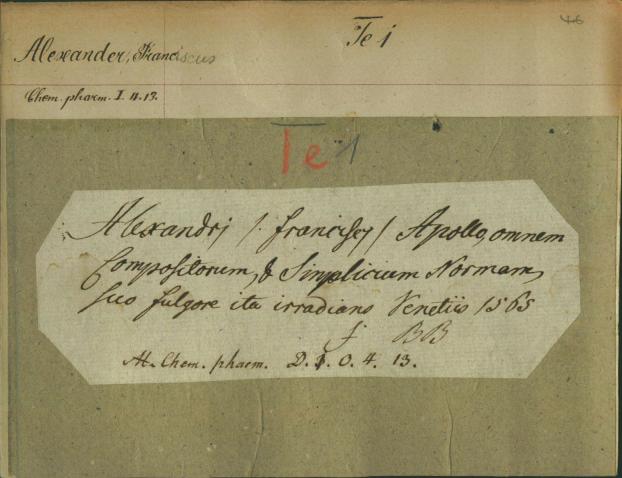 46
Te 1
Alexander, Franciscus
Chem. pharm. I. 4. 13.
Te 1
Alexandrj /: Francisçj / Apollo, omnem
Compositorum, & Simplicium Normam,
suo fulgore ita irradians Venetiis 1565
f BB
At. Chem. pharm. D. 1. O. 4. 13.